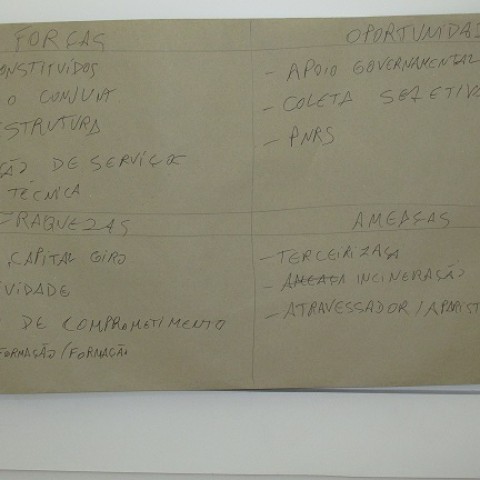 FORÇAS
ONSTITUIDOS
O CONJUNTA
ESTRUTURA
ÇÃO DE SERVIÇOS
TÉCNICA
OPORTUNIDAD
- APOIO GOVERNAMENTAL
- COLETA SELETIVA
- PNRS
FRAQUEZAS
CAPITAL GIRO
VIDADE
DE COMPROMETIMENTO
FORMAÇÃO/FORMAÇÃO
AMEAÇAS
- TERCEIRIZAÇÃ
- AMEAÇA INCINERAÇÃO
- ATRAVESSADOR/APARIST